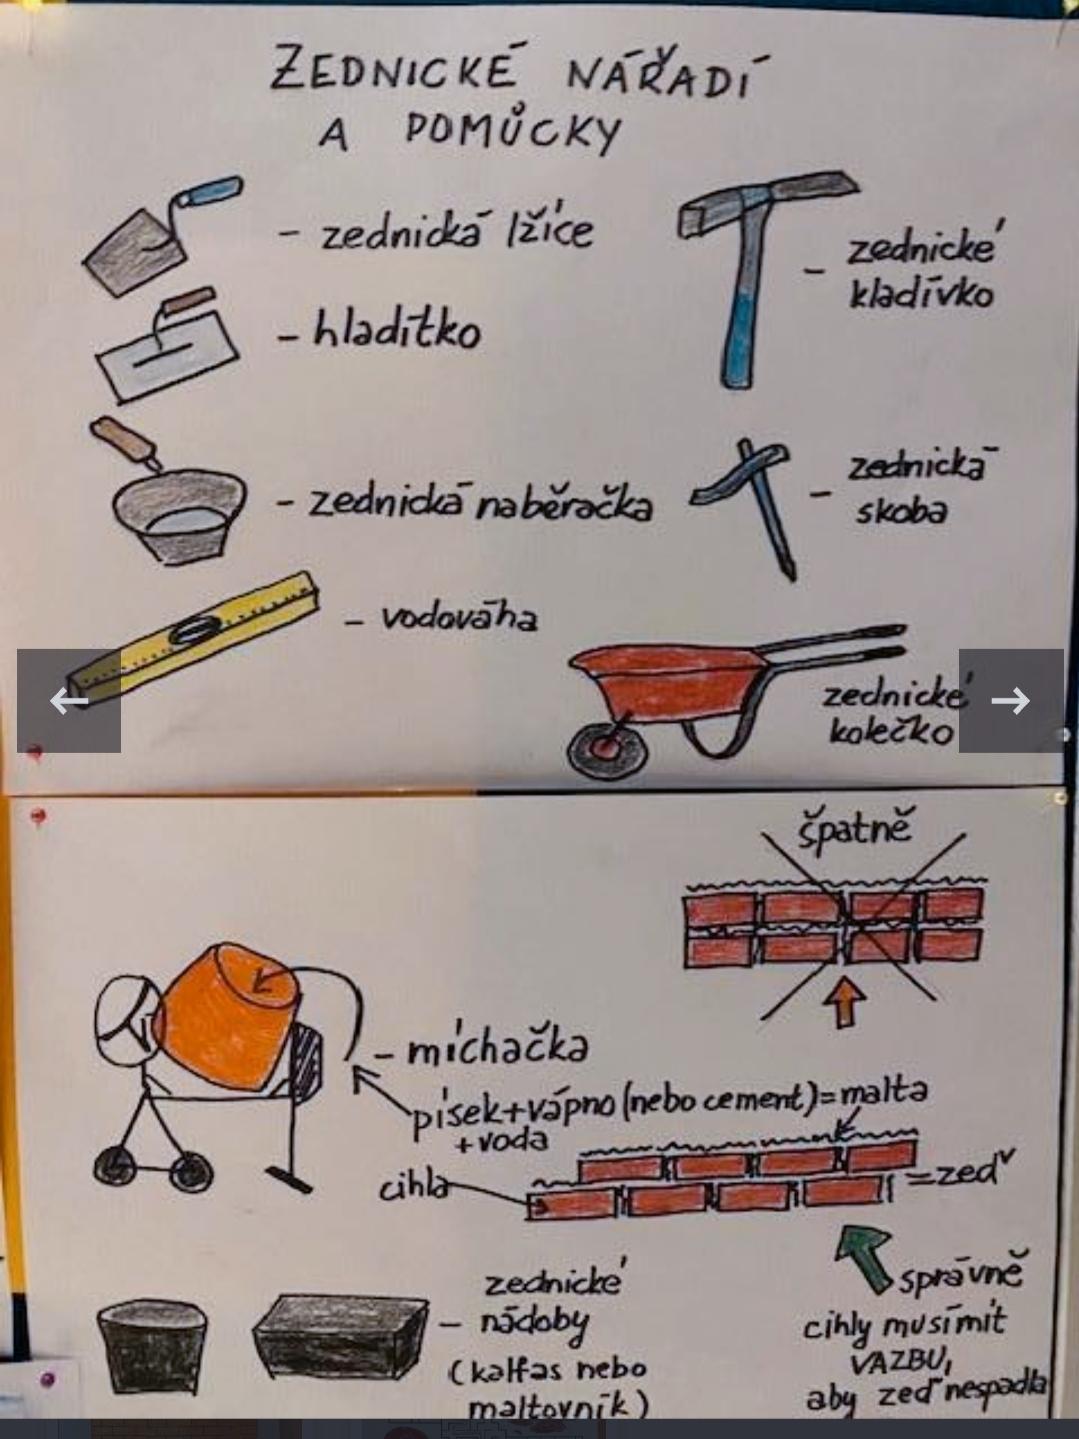 ZEDNICKÉ NÁŘADÍ
A POMŮCKY
- zednická lžíce
- hladítko
- zednická naběračka
- vodováha
- zednické
kladívko
- zednická
skoba
zednické
kolečko
špatně
- míchačka
písek+vápno (nebo cement)=malta
+voda
cihla
=zeď
správně
cihly musí mít
VAZBU,
aby zeď nespadla
zednické
- nádoby
(kalfas nebo
maltovník)